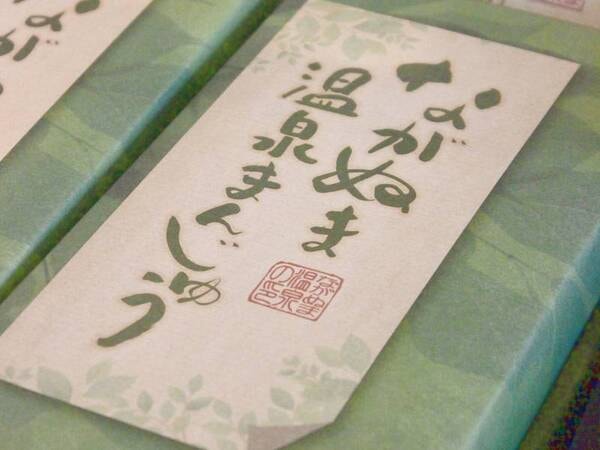 ながぬま
温泉まんじゅう
ながぬま
温泉
の印